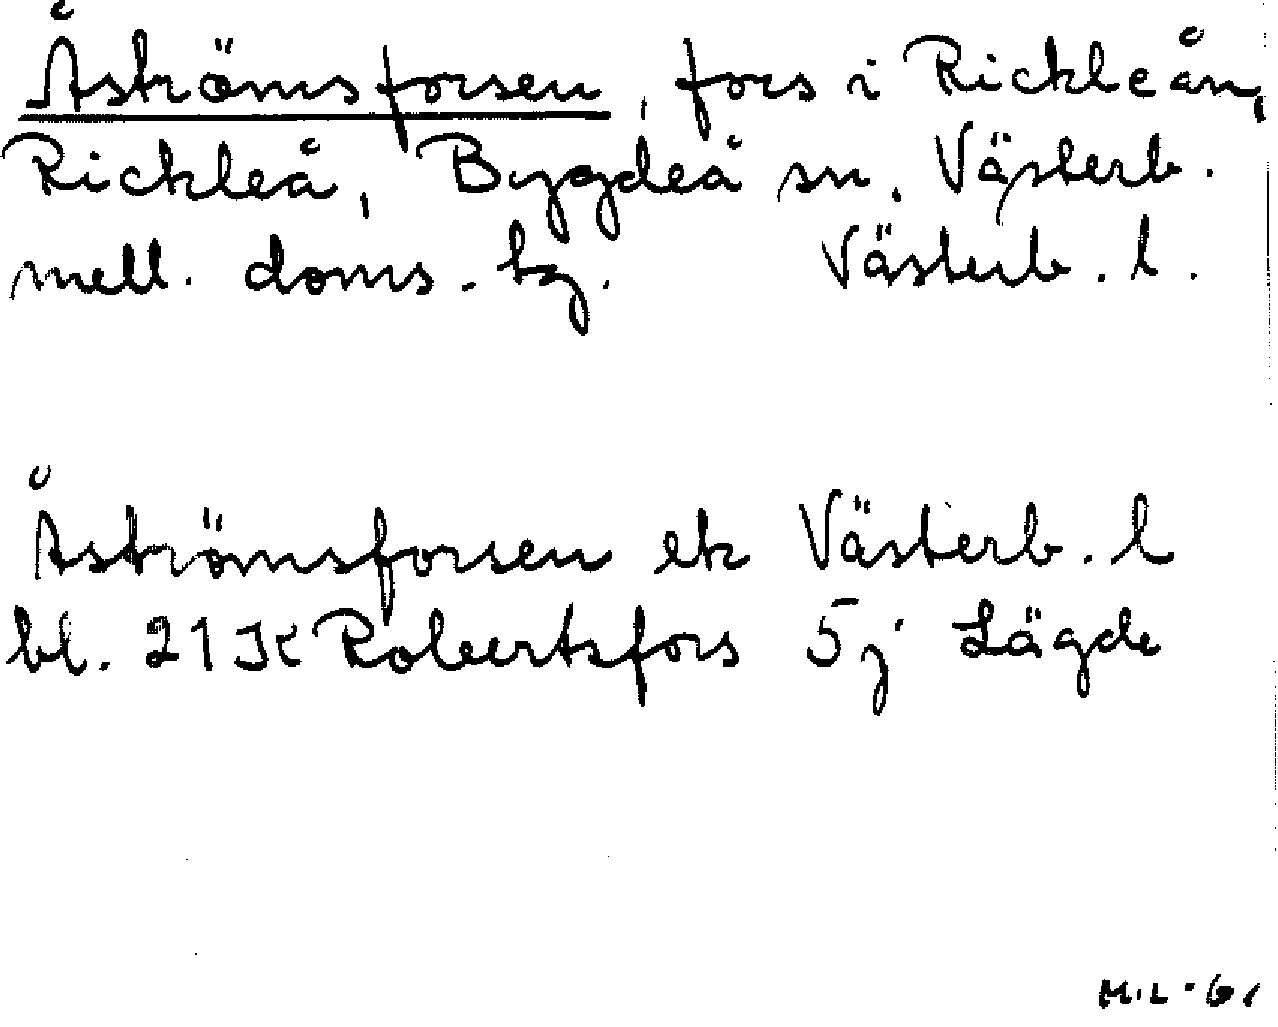 Åströmsforsen, fors i Rickleån,
Rickleå, Bygdeå sn, Västerb.
mell. doms. tg. Västerb. l.
Åströmsforsen ek Västerb. l
bl. 21 K Robertsfors 5j Lägde
H.L. 61